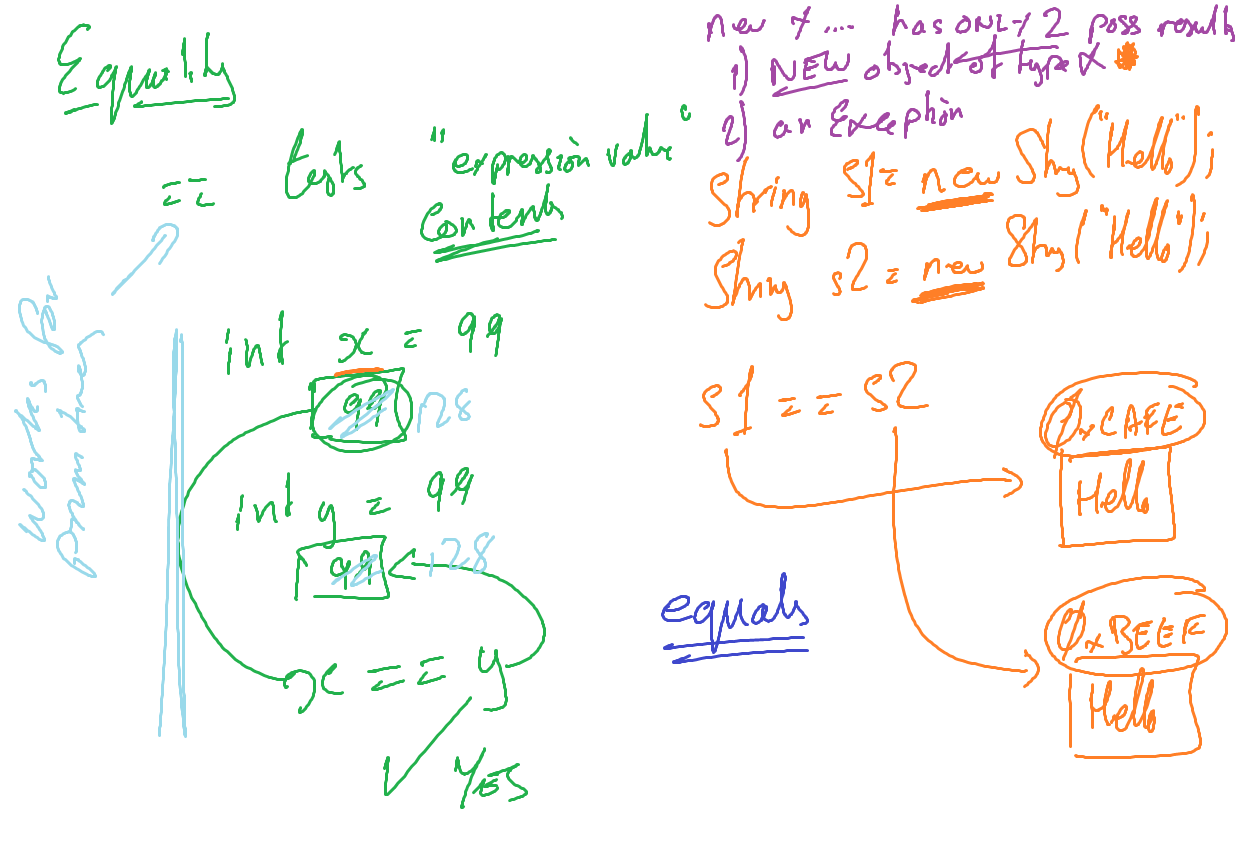 Equality
== tests "expression value"
contents
Works for
primitives
int x = 99
99 128
int y = 99
99 128
x == y
YES
new X .... has ONLY 2 poss results
1) NEW object of type X
2) an Exception
String s1 = new String("Hello");
String s2 = new String("Hello");
s1 == s2
0xCAFE
Hello
equals
0xBEEF
Hello